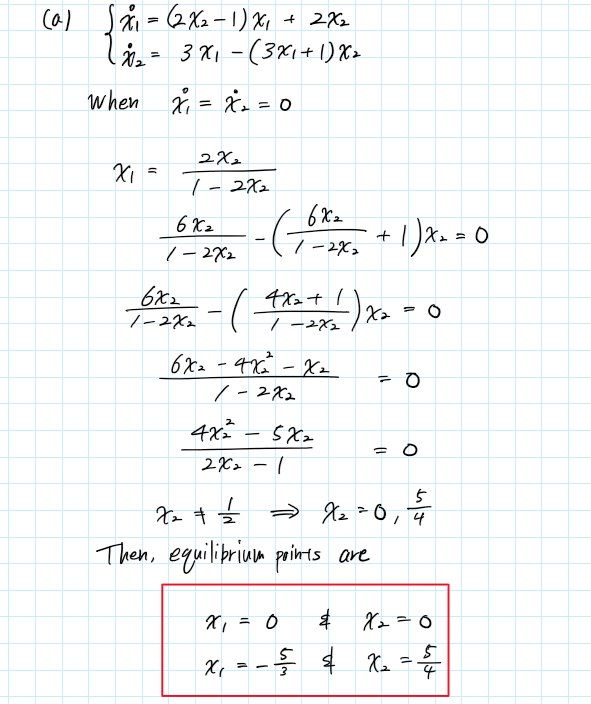 (a) { ẋ₁ = (2x₂ - 1)x₁ + 2x₂
ẋ₂ = 3x₁ - (3x₁ + 1)x₂
When ẋ₁ = ẋ₂ = 0
x₁ = 2x₂ / (1 - 2x₂)
6x₂ / (1 - 2x₂) - ( 6x₂ / (1 - 2x₂) + 1 ) x₂ = 0
6x₂ / (1 - 2x₂) - ( (4x₂ + 1) / (1 - 2x₂) ) x₂ = 0
(6x₂ - 4x₂² - x₂) / (1 - 2x₂) = 0
(4x₂² - 5x₂) / (2x₂ - 1) = 0
x₂ ≠ 1/2 ⟹ x₂ = 0, 5/4
Then, equilibrium points are
x₁ = 0 & x₂ = 0
x₁ = -5/3 & x₂ = 5/4